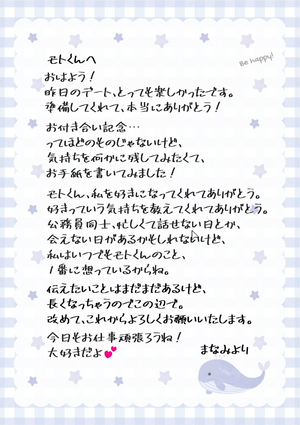 モトくんへ
Be happy!
おはよう！
昨日のデート、とっても楽しかったです。
準備してくれて、本当にありがとう！
お付き合い記念…
ってほどのものじゃないけど、
気持ちを何かに残してみたくて、
お手紙を書いてみました！
モトくん、私を好きになってくれてありがとう。
好きっていう気持ちを教えてくれてありがとう。
公務員同士、忙しくて話せない日とか、
会えない日があるかもしれないけど、
私はいつでもモトくんのこと、
1番に想っているからね。
伝えたいことはまだまだあるけど、
長くなっちゃうのでこの辺で。
改めて、これからよろしくお願いいたします。
今日もお仕事頑張ろうね！
大好きだよ💕
まなみより